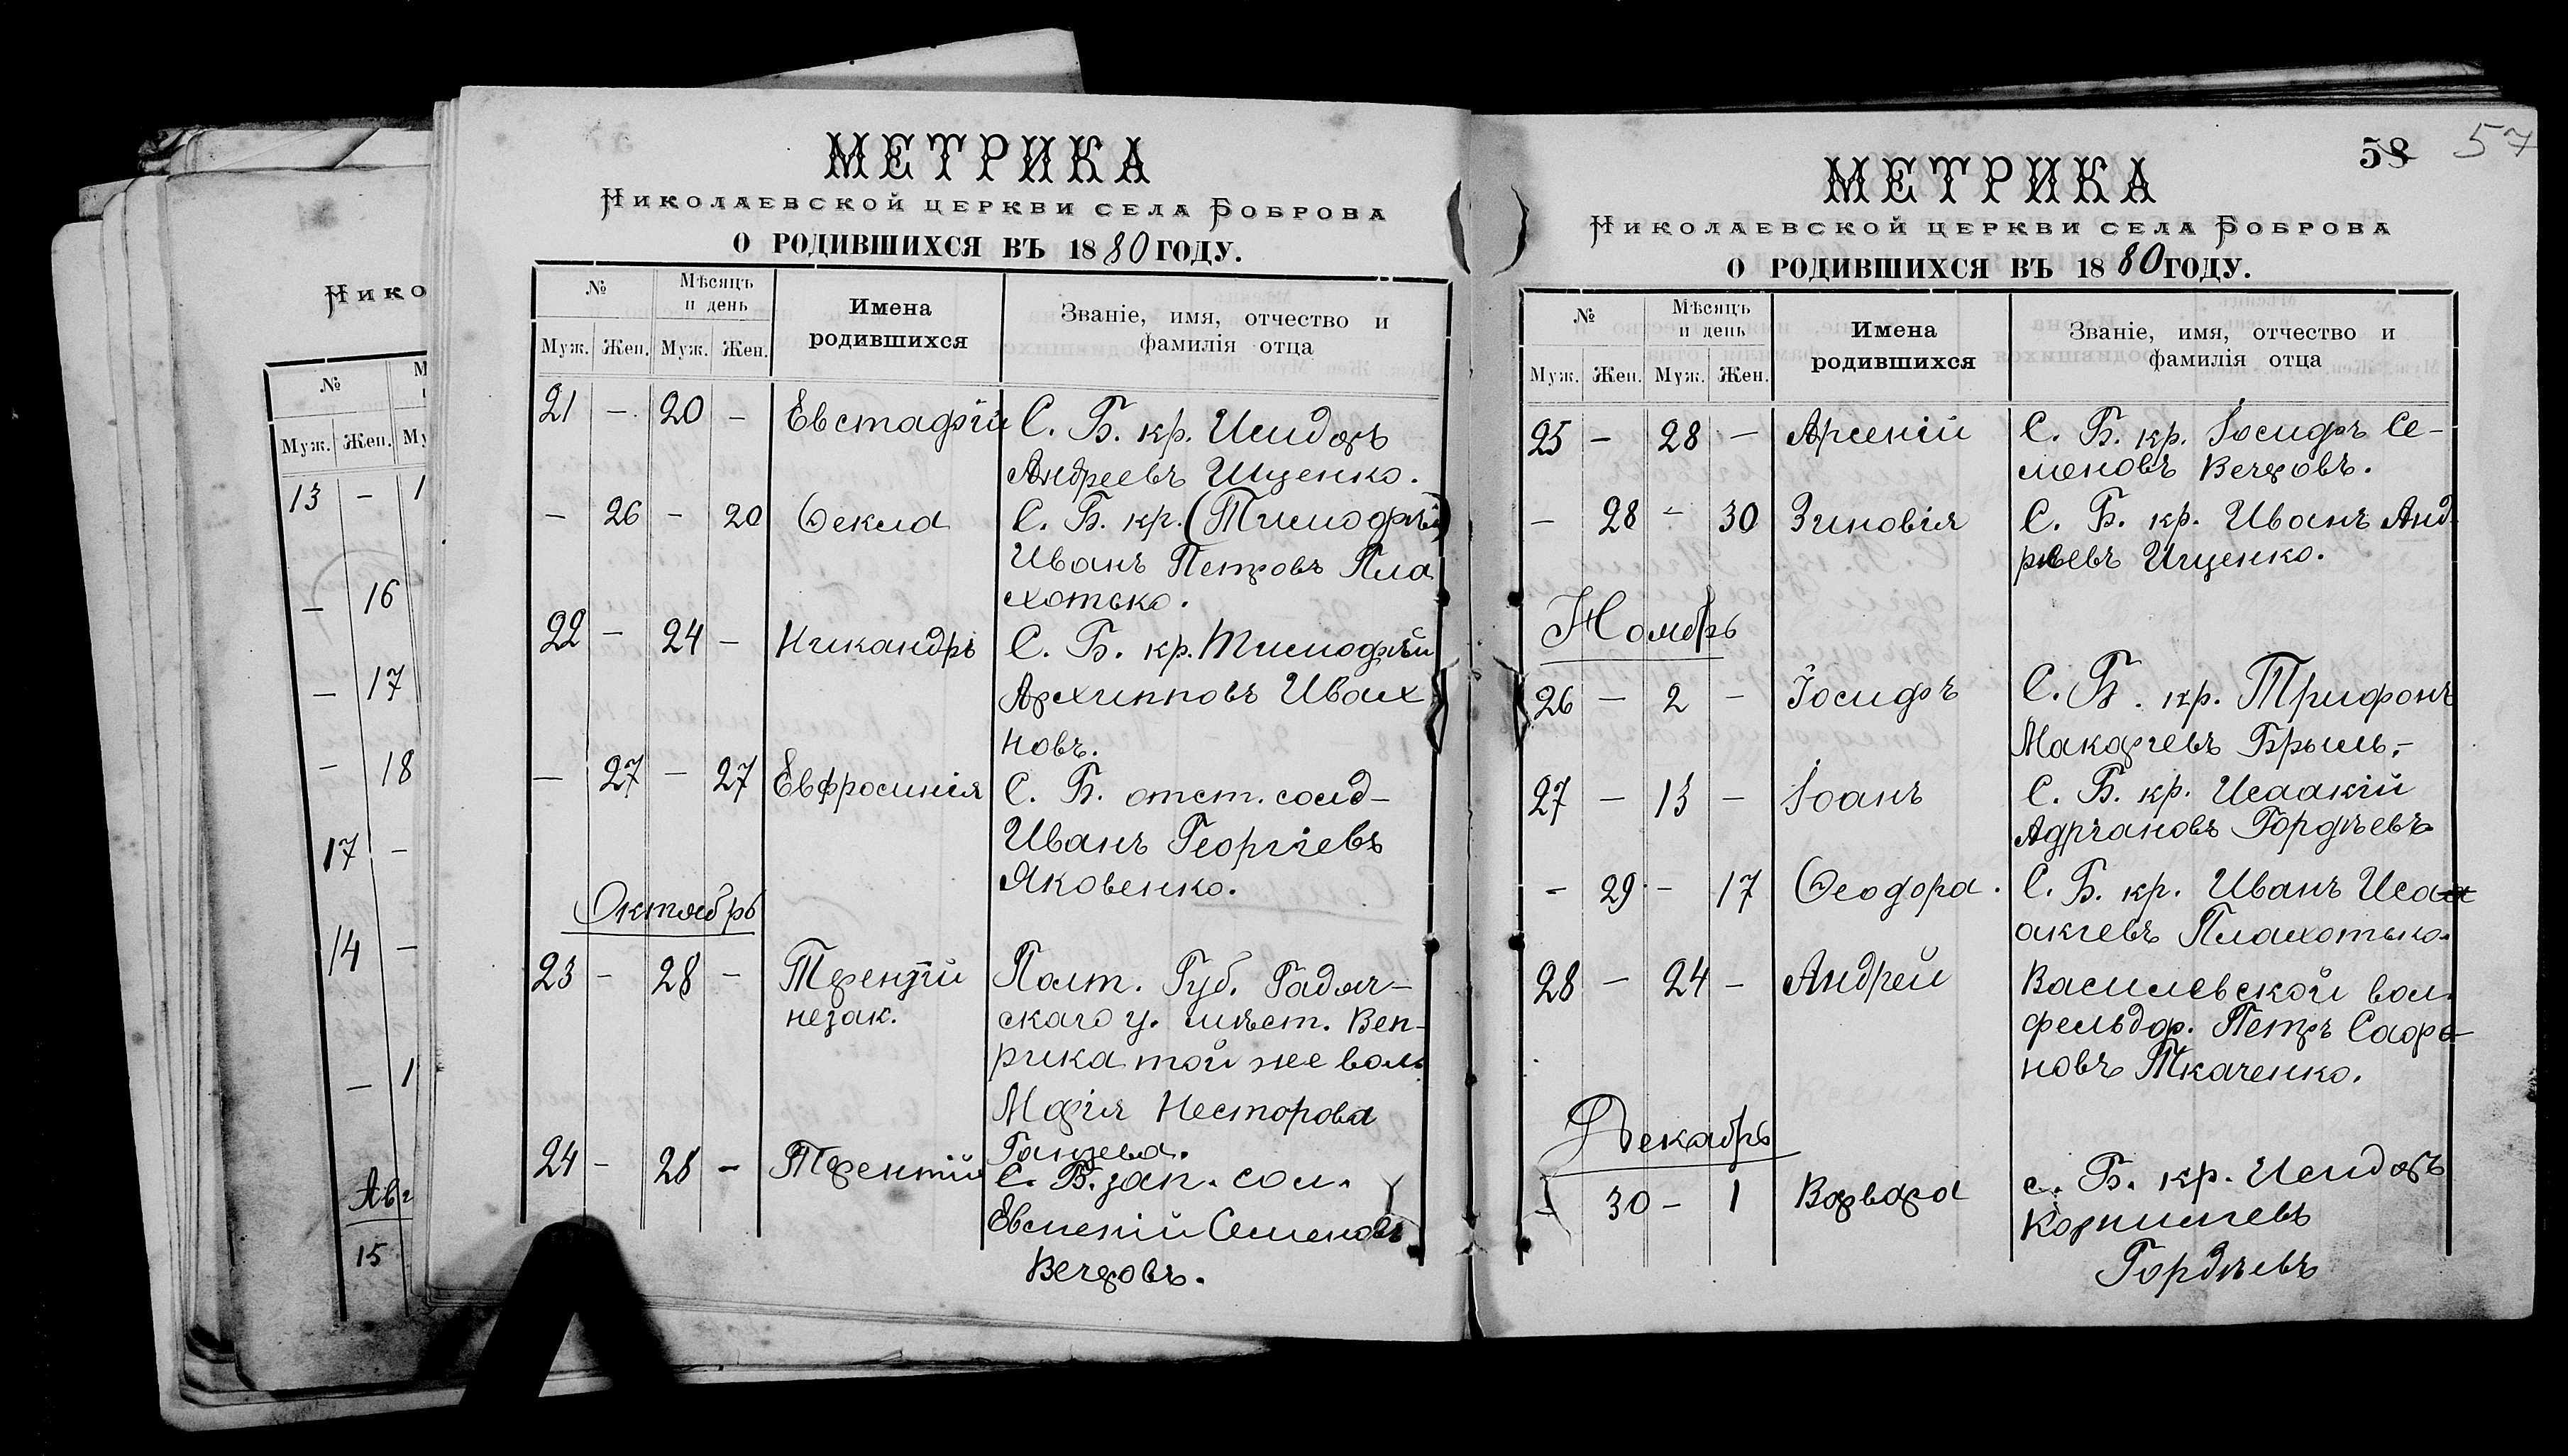 НИКО
№ М
Муж. Жен. Му
13 – 1
– 16
– 17
– 18
17 –
14 –
– 1
Авг
15
МЕТРИКА
НИКОЛАЕВСКОЙ ЦЕРКВИ СЕЛА БОБРОВА
О РОДИВШИХСЯ ВЪ 1880 ГОДУ.
№ Мѣсяцъ и день Имена родившихся Званіе, имя, отчество и фамилія отца
Муж. Жен. Муж. Жен.
21 – 20 – Евстафій С. Б. кр. Исидоръ
Андреевъ Ищенко.
– 26 – 20 Ѳекла С. Б. кр. (Тимофѣй)
Иванъ Петровъ Пла
хотько.
22 – 24 – Никандръ С. Б. кр. Тимофѣй
Архипповъ Ивах
новъ.
– 27 – 27 Евфросинія С. Б. отст. солд–
Иванъ Георгіевъ
Яковенко.
Октябрь
23 – 28 – Терентій Полт. Губ. Гадяч–
незак. скаго у. мѣст. Веп–
рика той же вол.
Марія Несторова
24 – 28 – Терентій С. Б. зап. сол.
Евгеній Семеновъ
Вечеровъ.
58 57
МЕТРИКА
НИКОЛАЕВСКОЙ ЦЕРКВИ СЕЛА БОБРОВА
О РОДИВШИХСЯ ВЪ 1880 ГОДУ.
№ Мѣсяцъ и день Имена родившихся Званіе, имя, отчество и фамилія отца
Муж. Жен. Муж. Жен.
25 – 28 – Арсеній С. Б. кр. Іосифъ Се–
меновъ Вечеровъ.
– 28 – 30 Зиновія С. Б. кр. Иванъ Анд
рѣевъ Ищенко.
Ноябрь
26 – 2 – Іосифъ С. Б. кр. Трифонъ
Макаріевъ Брыль,–
27 – 13 – Іоанъ С. Б. кр. Исаакій
Адріановъ Гордѣевъ
– 29 – 17 Ѳеодора. С. Б. кр. Иванъ Исаа
акіевъ Плахотько.
28 – 24 – Андрей Василевской вол.
фельдф. Петръ Сафо–
новъ Ткаченко.
Декабрь
– 30 – 1 Варвара с. Б. кр. Исидоръ
Корниліевъ
Гордѣевъ